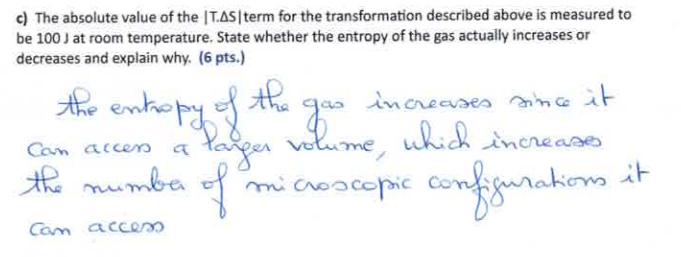 c) The absolute value of the |T.ΔS| term for the transformation described above is measured to
be 100 J at room temperature. State whether the entropy of the gas actually increases or
decreases and explain why. (6 pts.)
the entropy of the gas increases since it
can access a larger volume, which increases
the number of microscopic configurations it
can access